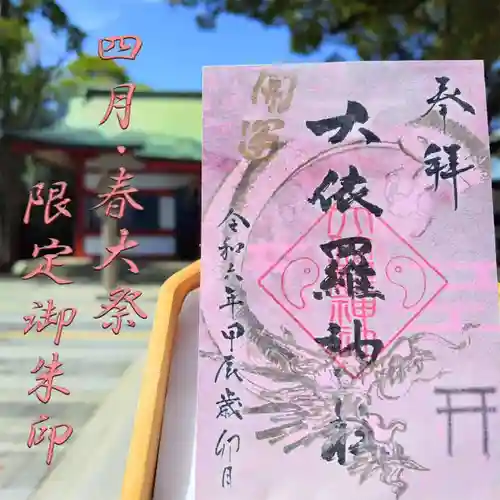 四月・春大祭
限定御朱印
奉拝
大依羅神社
開運
令和六年甲辰歳卯月